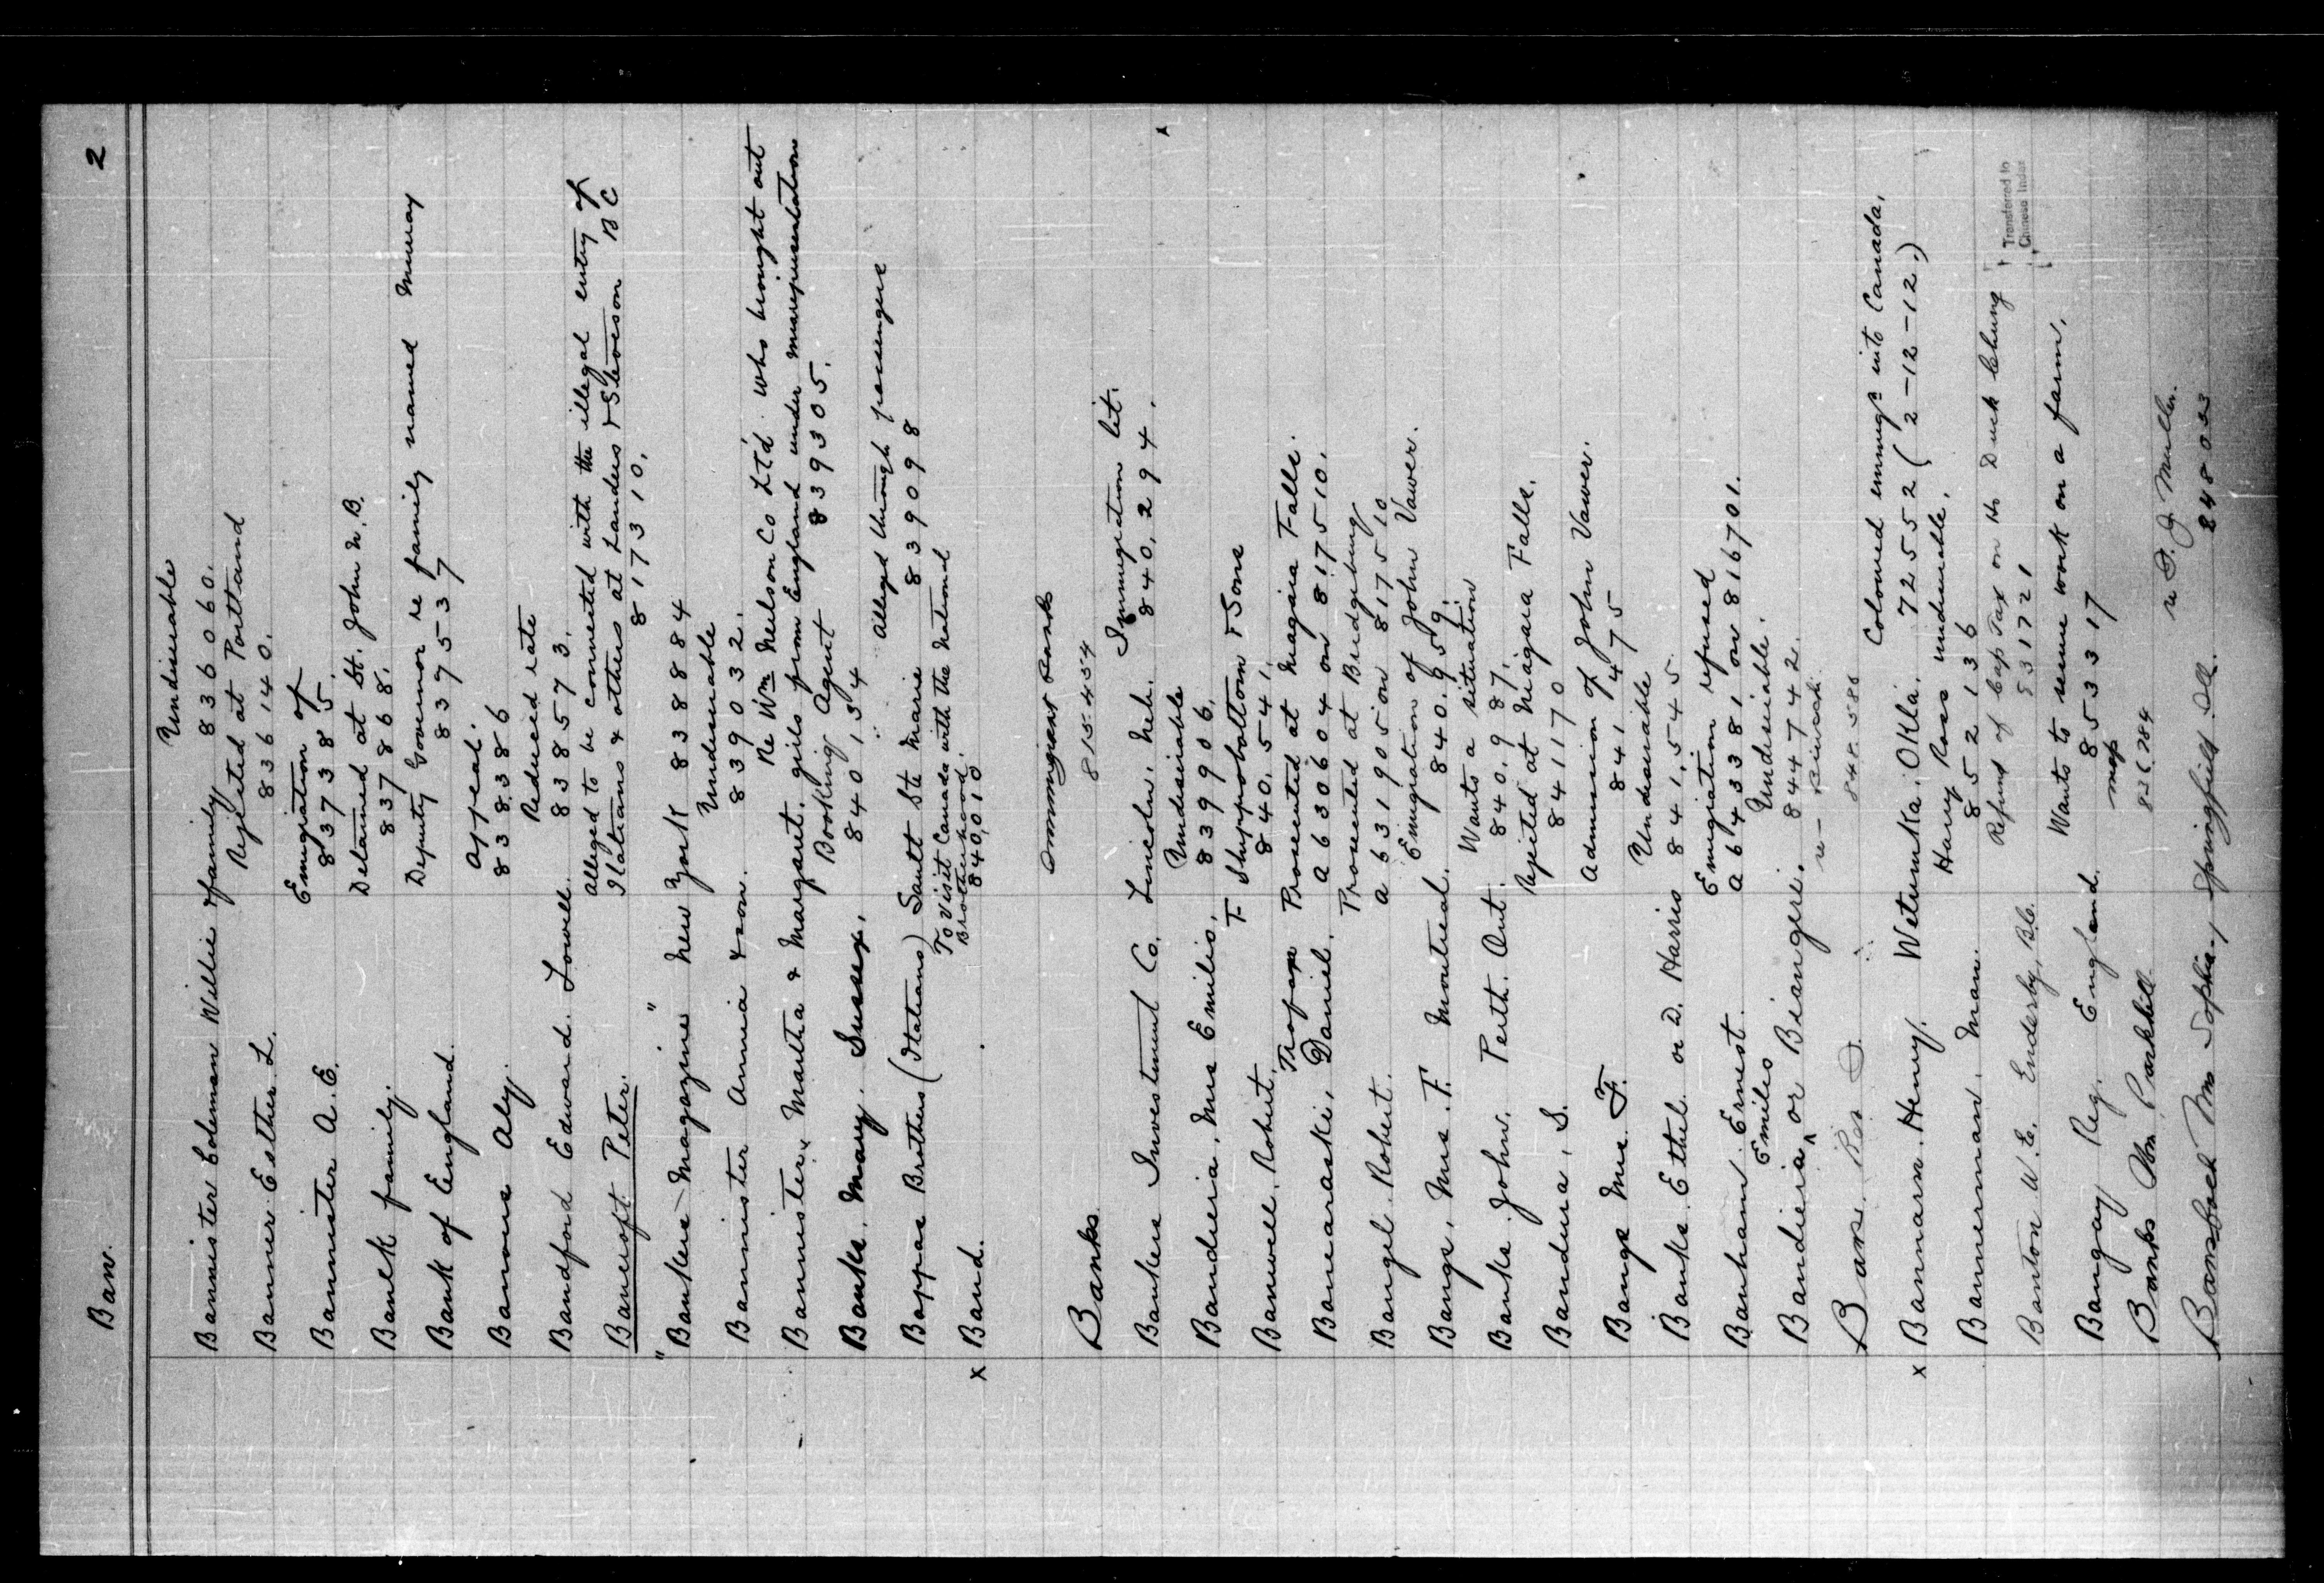 Ban.
2
Undesirable
Bannister Coleman Willie & family 836060.
Rejected at Portland
Banner Esther L. 836140.
Emigration of
Bannister A. E. 837385.
Detained at St. John N.B.
Banelk family. 837868.
Deputy Governor re family named Murray
Bank of England. 837537
Appeal.
Bannous Aly. 838386
Reduced rate
Bandford Edward. Lowell. 838573.
Alleged to be connected with the illegal entry of
Italians & others at Landers & Steveson BC
Bancroft Peter. 817310.
"Bankers Magazine" New York 838884
Undesirable
Bannister Annia & son. 839032.
Re Wm Neilson Co Ltd. who brought out
Bannister, Martha & Margaret. girls from England under misrepresentations
Booking Agent 839305.
Banks. Mary. Sussex. 840134
Alleged through passengers
Bappas Brothers (Italians) Sault Ste Marie 839098
To Visit Canada with the National
Brotherhood.
x Band. 840,010
Immigrant Banks
Banks 815454
Immigration lit.
Bankers Investment Co. Lincoln. Neb. 840,294.
Undesirable
Bandieria, Mrs Emilio. 839906.
F Shuppobottom & Sons
Banwell, Robert. 840,541.
Prosecuted at Niagara Falls.
Banearaski, Daniel. A630604 on 817510.
Prosecuted at Bridgeburg
Bangel. Robert. A631905 on 817510
Emigration of John Vawer.
Bangs, Mrs. F. Montreal. 840,959.
Wants a situation
Banks. John. Perth. Ont. 840,987.
Rejected at Niagara Falls.
Bandura, S. 841170
Admission of John Vawer.
Bangs Mrs. F. 841475
Undesirable
Banks. Ethel. or D. Harris 841,545.
Emigration refused
Banham. Ernest. A643381 on 816701.
Undesirable.
Emilis
Bandieria or Biangeri. 844742.
848586
Coloured immigs into Canada,
x Bannarn. Henry. Wetumka, Okla. 72552 (2-12-12.)
Harry Ross undesirable.
Bannerman. Man. 852136
Refund of Cap Tax on Ho Duck Chung
Banton W. E. Enderby, B.C. 531721
Transferred to
Chinese Index
Wants to secure work on a farm.
Bangay Reg. England. 853317
map
Banks Wm Parkhill 836784
re F. J. Muller.
Mrs Sophie, Springfield Ill. 848033